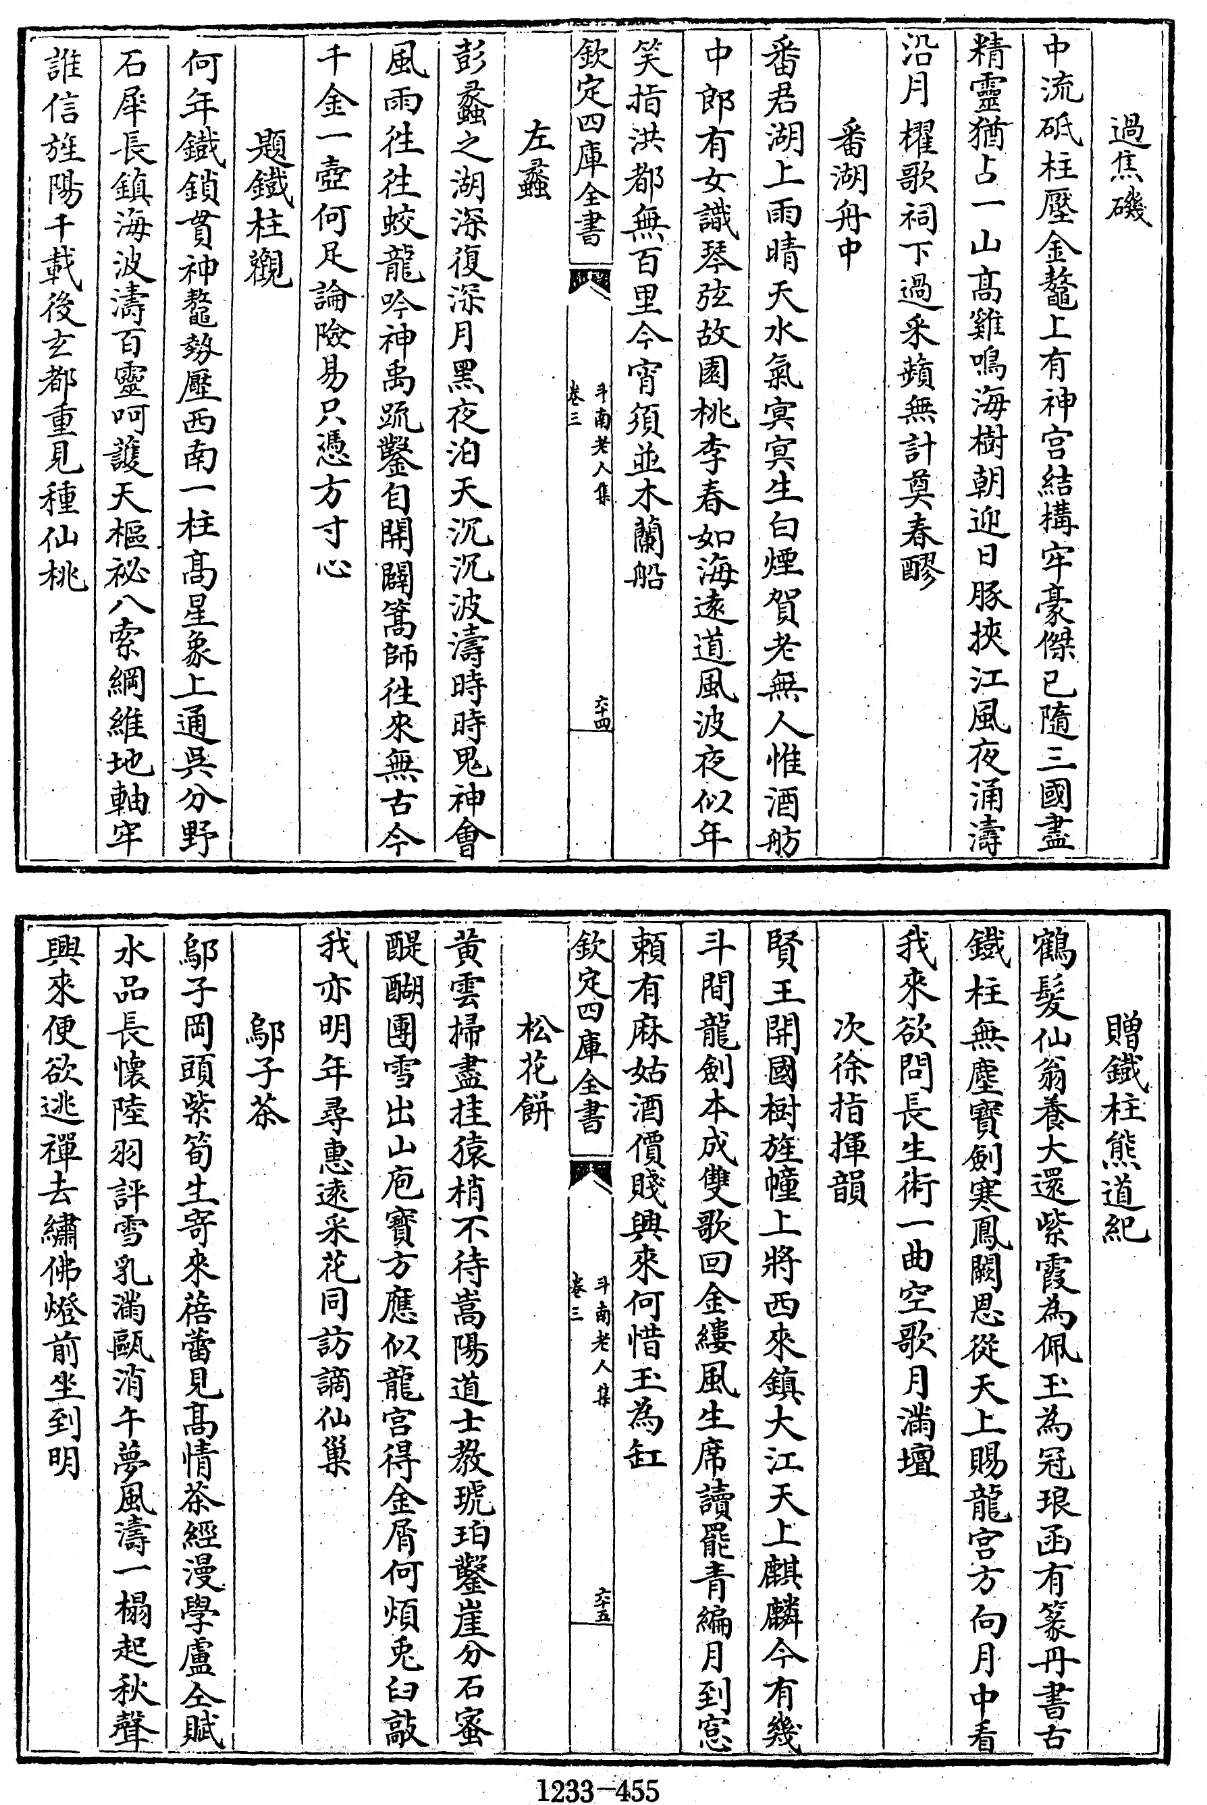 過焦磯
中流砥柱壓金鼇上有神宫結構牢豪傑已隨三國盡
精靈猶占一山高雞鳴海樹朝迎日豚挾江風夜涌濤
沿月櫂歌祠下過采蘋無計奠春醪
番湖舟中
番君湖上雨晴天水氣冥冥生白煙賀老無人惟酒舫
中郎有女識琴弦故園桃李春如海遠道風波夜似年
笑指洪都無百里今宵須並木蘭船
欽定四庫全書
斗南老人集
卷三
六十四
左蠡
彭蠡之湖深復深月黑夜泊天沉沉波濤時時鬼神會
風雨往往蛟龍吟神禹疏鑿自開闢篙師往來無古今
千金一壺何足論險易只憑方寸心
題鐵柱觀
何年鐵鎖貫神鼇勢壓西南一柱高星象上通吳分野
石犀長鎮海波濤百靈呵護天樞祕八索綱維地軸牢
誰信旌陽千載後玄都重見種仙桃
贈鐵柱熊道紀
鶴髮仙翁養大還紫霞為佩玉為冠琅函有篆丹書古
鐵柱無塵寶劍寒鳳闕恩從天上賜龍宫方向月中看
我來欲問長生術一曲空歌月滿壇
次徐指揮韻
賢王開國樹旌幢上將西來鎮大江天上麒麟今有幾
斗間龍劍本成雙歌回金縷風生席讀罷青編月到窓
頼有麻姑酒價賤興來何惜玉為缸
欽定四庫全書
斗南老人集
卷三
六十五
松花餅
黄雲掃盡挂猿梢不待嵩陽道士教琥珀鑿崖分石蜜
醍醐團雪出山庖寶方應似龍宫得金屑何煩兎臼敲
我亦明年尋惠遠采花同訪謫仙巢
鄔子茶
鄔子岡頭紫筍生寄來蓓蕾見高情茶經漫學盧仝賦
水品長懷陸羽評雪乳滿甌消午夢風濤一榻起秋聲
興來便欲逃禪去繡佛燈前坐到明
1233-455